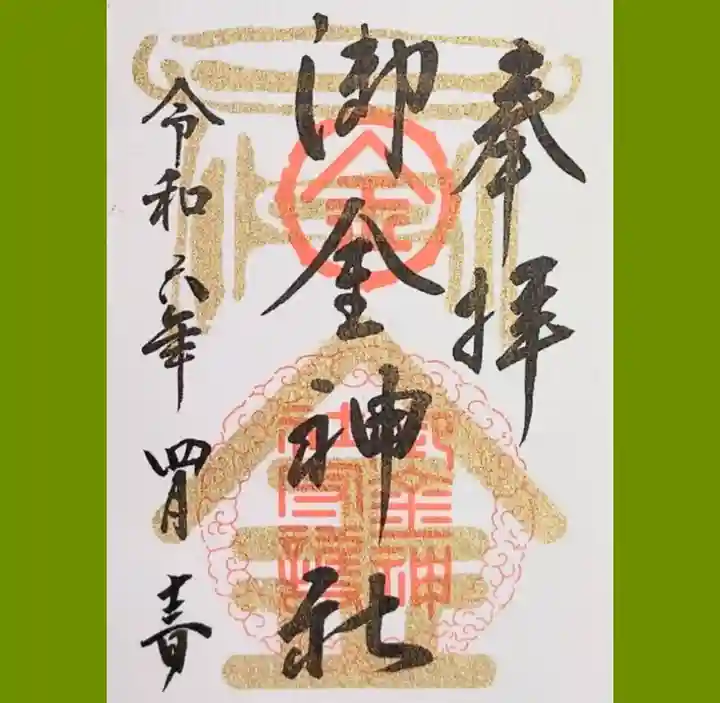 奉拝
御金神社
令和六年四月
金
御金神